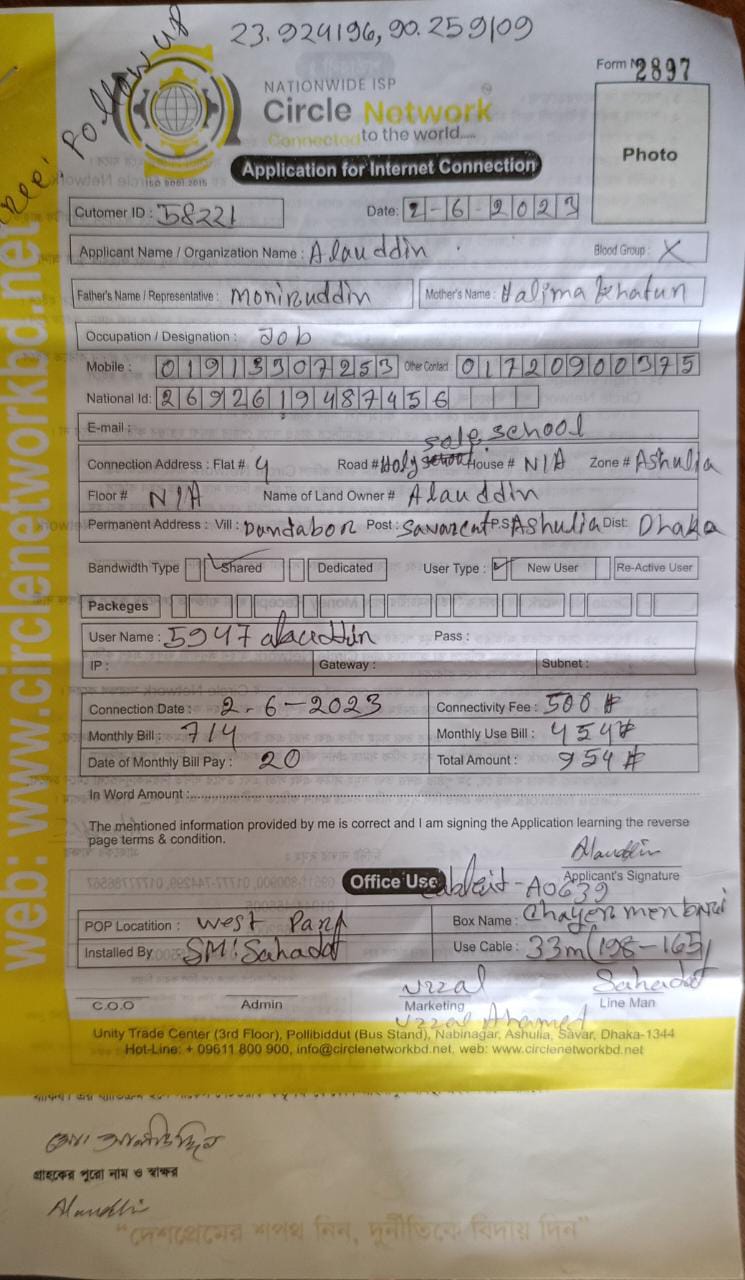 23.924196, 90.259109
Follow up
Form No 2897
NATIONWIDE ISP
Circle Network
Connected to the world.....
ISO 9001:2015
Application for Internet Connection
Photo
Cutomer ID : 58221 Date: 2-6-2023
Applicant Name / Organization Name : Alauddin Blood Group : X
Father's Name / Representative : Moniruddin Mother's Name : Halima Khatun
Occupation / Designation : Job
Mobile : 01913307253 Other Contact 01720900375
National Id: 2692619487456
E-mail :
sale school
Connection Address : Flat # 4 Road # Holy House # N/A Zone # Ashulia
Floor # N/A Name of Land Owner # Alauddin
Permanent Address : Vill : Dandabor Post : Savarcant P.S Ashulia Dist: Dhaka
Bandwidth Type Shared Dedicated User Type : New User Re-Active User
Packeges
User Name : 5947 alauddin Pass :
IP : Gateway : Subnet :
Connection Date : 2-6-2023 Connectivity Fee : 500 #
Monthly Bill : 714 Monthly Use Bill : 454 #
Date of Monthly Bill Pay : 20 Total Amount : 954 #
In Word Amount :
The mentioned information provided by me is correct and I am signing the Application learning the reverse
page terms & condition.
Alauddin
Applicant's Signature
Office Use - A0639
POP Locatition : West Para Box Name : Chayer men bari
Installed By SM: Sahadat Use Cable : 33m (198-165)
Uzzal Sahadat
C.O.O Admin Marketing Line Man
Uzzal Ahamed
Unity Trade Center (3rd Floor), Pollibiddut (Bus Stand), Nabinagar, Ashulia, Savar, Dhaka-1344
Hot-Line: + 09611 800 900, info@circlenetworkbd.net, web: www.circlenetworkbd.net
web: www.circlenetworkbd.net
মোঃ আলাউদ্দিন
গ্রাহকের পুরো নাম ও স্বাক্ষর
Alauddin
“দেশপ্রেমের শপথ নিন, দুর্নীতিকে বিদায় দিন”